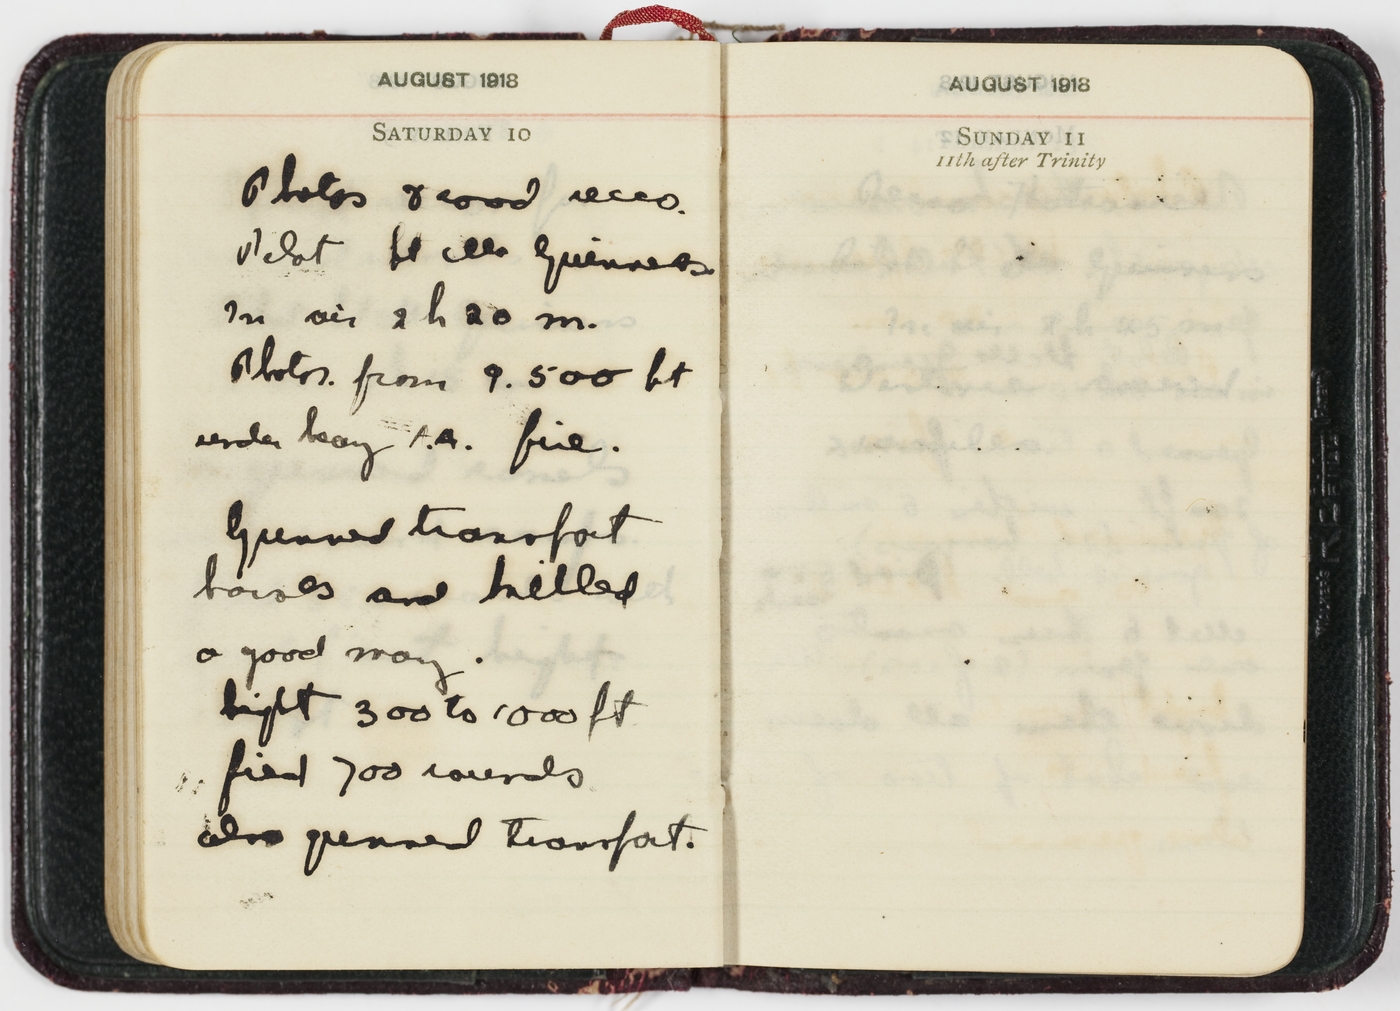 AUGUST 1918
SATURDAY 10
Photos & road recco.
Pilot Lt
In air 2 h 20 m.
Photos. from 9.500 ft
under heavy A.A. fire.
Gunned transport
horses and killed
a good many.
hight 300 to 1000 ft
fired 700 rounds
also gunned transport.
AUGUST 1918
SUNDAY 11
11th after Trinity